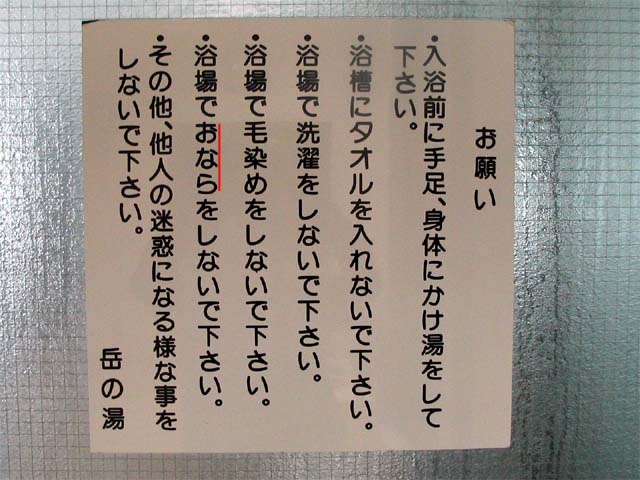 お願い
・入浴前に手足、身体にかけ湯をして
下さい。
・浴槽にタオルを入れないで下さい。
・浴場で洗濯をしないで下さい。
・浴場で毛染めをしないで下さい。
・浴場でおならをしないで下さい。
・その他、他人の迷惑になる様な事を
しないで下さい。
岳の湯